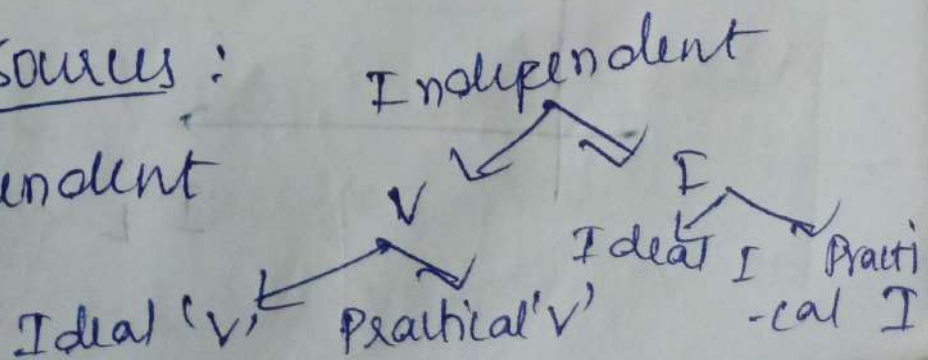 Sources :
Independent
endent
V I
Ideal I Practi
Ideal 'V' Practical 'V' -cal I